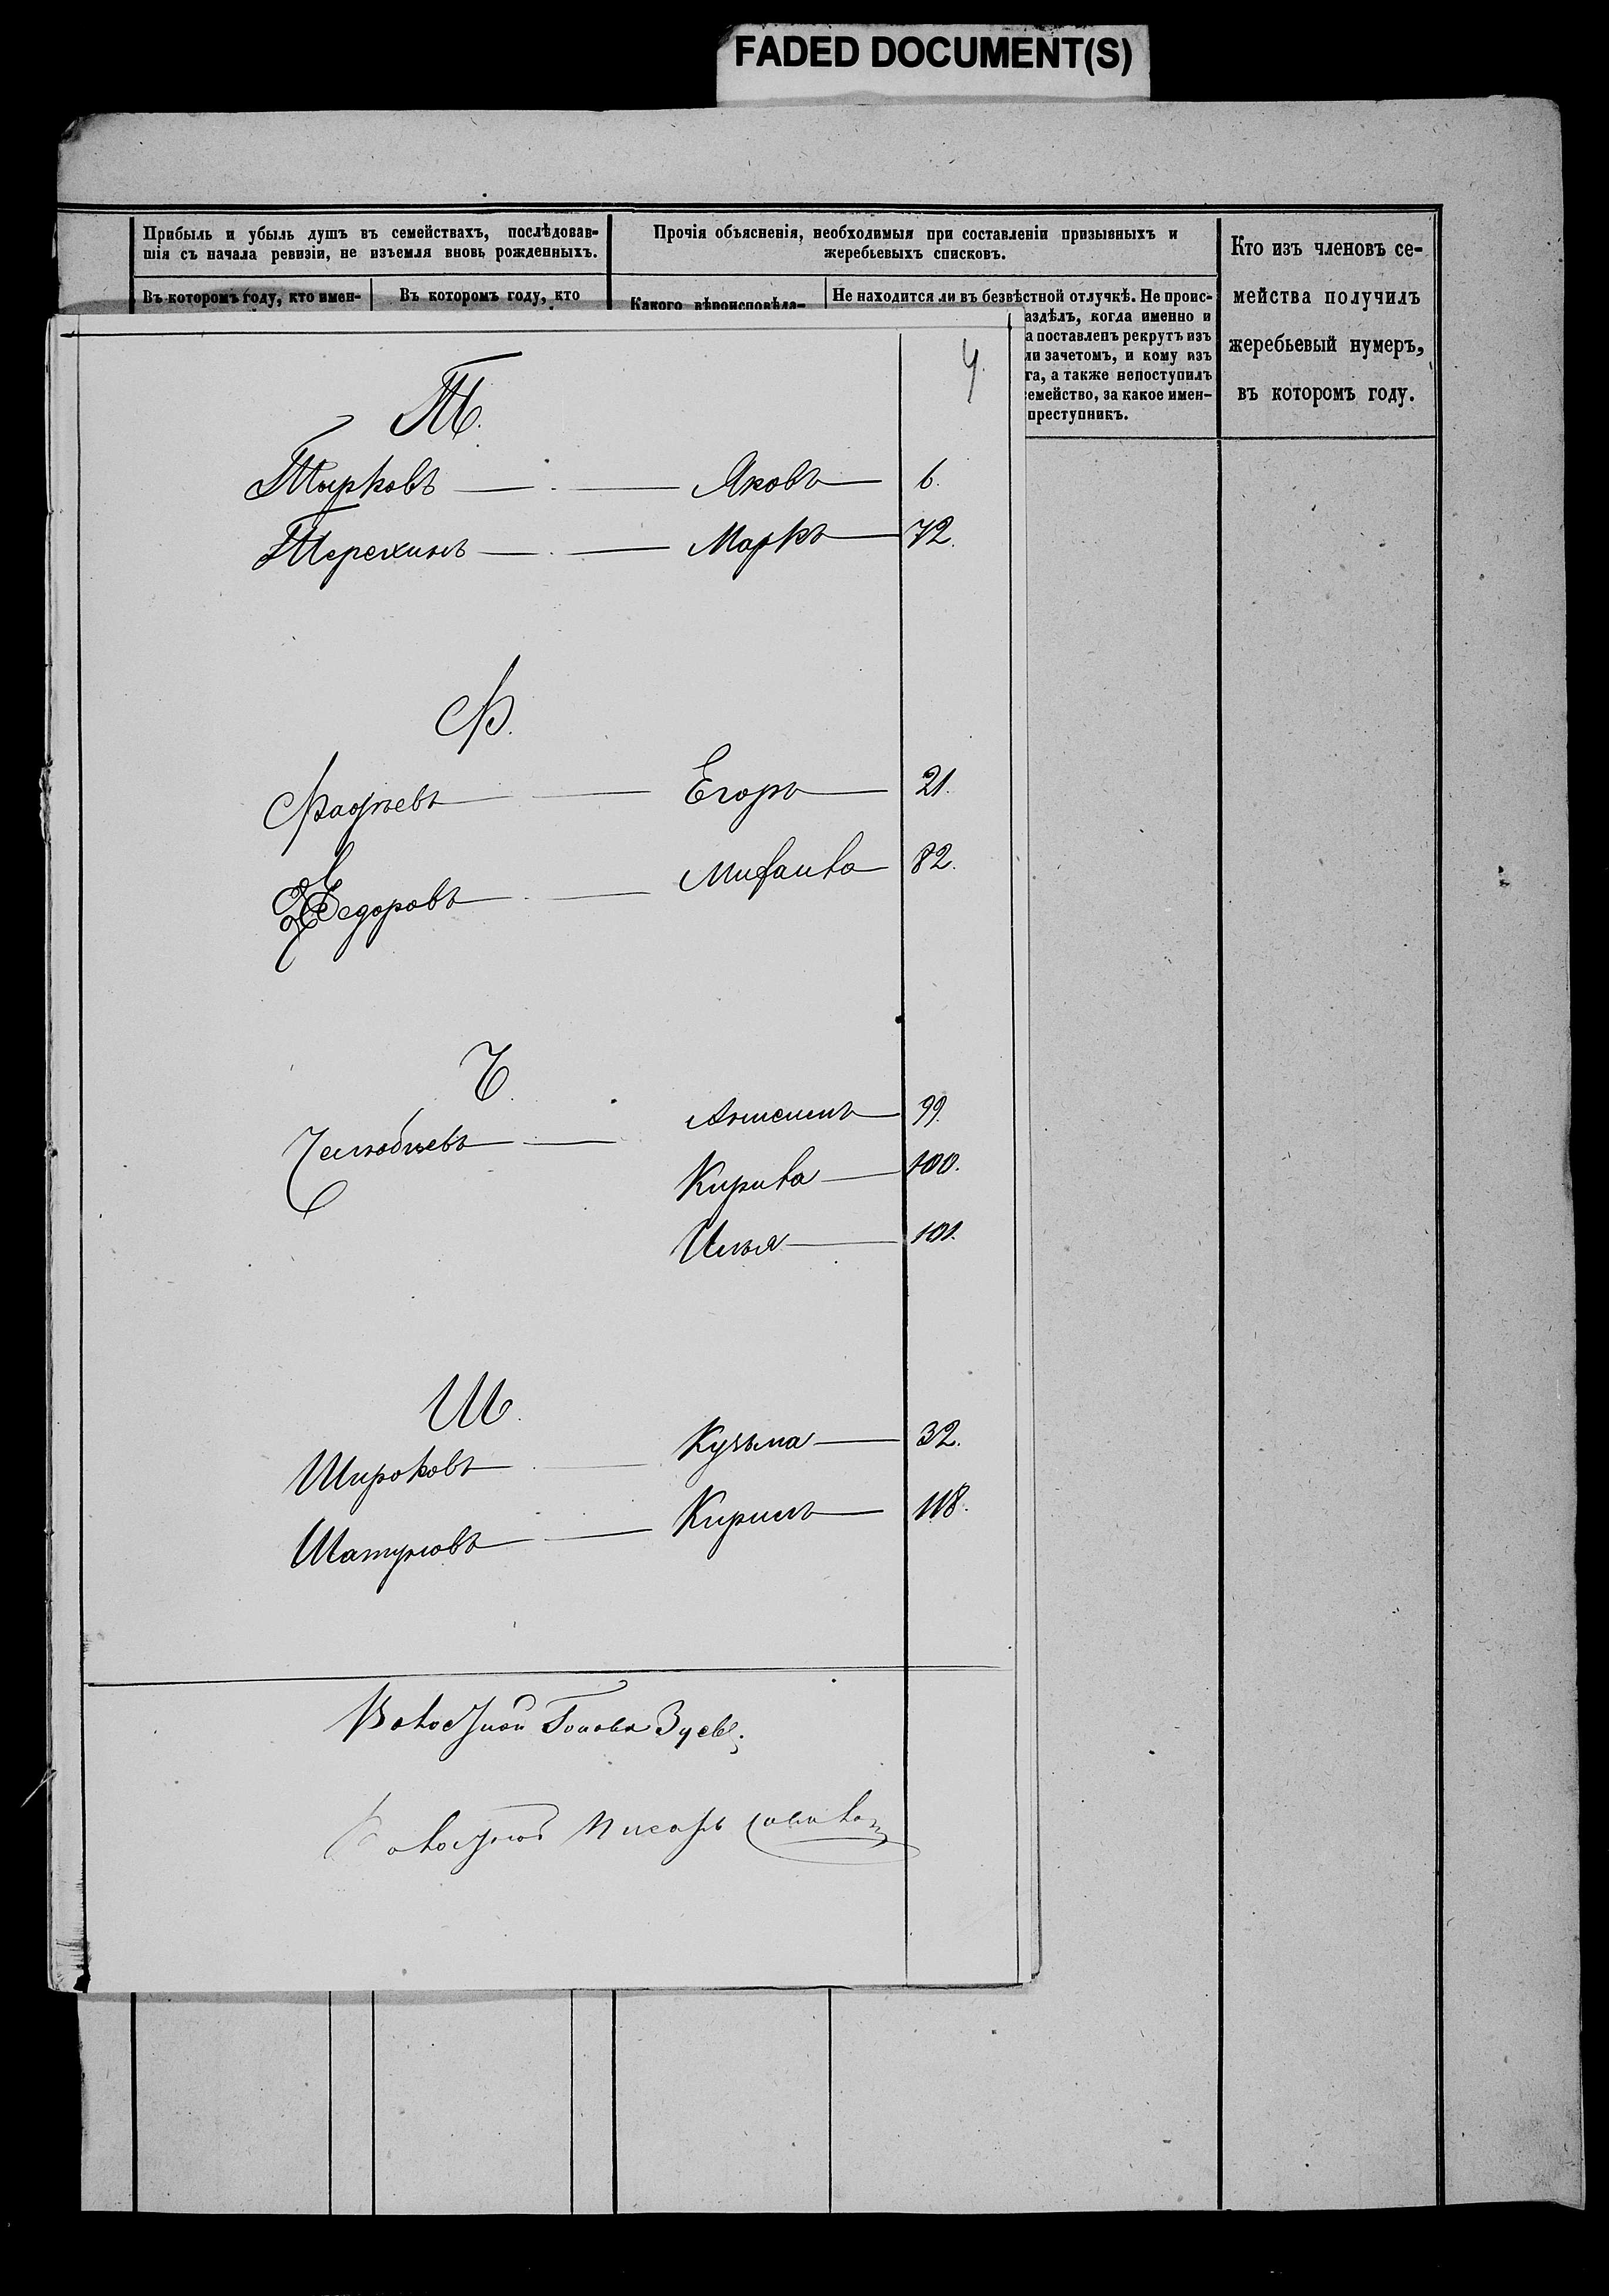 FADED DOCUMENT(S)
Прибыль и убыль душъ въ семействахъ, послѣдовав-
шія съ начала ревизіи, не изъемля вновь рожденныхъ.
Прочія объясненія, необходимыя при составленіи призывныхъ и
жеребьевыхъ списковъ.
Кто изъ членовъ се-
мейства получилъ
жеребьевый нумеръ,
въ которомъ году.
Въ которомъ году, кто имен-
Въ которомъ году, кто
Какого вѣроисповѣда-
Не находится ли въ безвѣстной отлучкѣ. Не проис-
аздѣлъ, когда именно и
а поставленъ рекрутъ изъ
ли зачетомъ, и кому изъ
га, а также непоступилъ
емейство, за какое имен-
преступникъ.
4.
Т.
Тырковъ — Яковъ — 6.
Терехинъ — Маркъ — 72.
Ф.
Фадѣевъ — Егоръ — 21.
Федоровъ — Михаила — 82.
Ч.
Челюбѣевъ — 99.
Кирила — 100.
Илья — 101.
Ш.
Широковъ — Кузьма — 32.
Шатуновъ — Кирилъ — 118.
Волостной Голова Зуевъ
Волостной Писарь